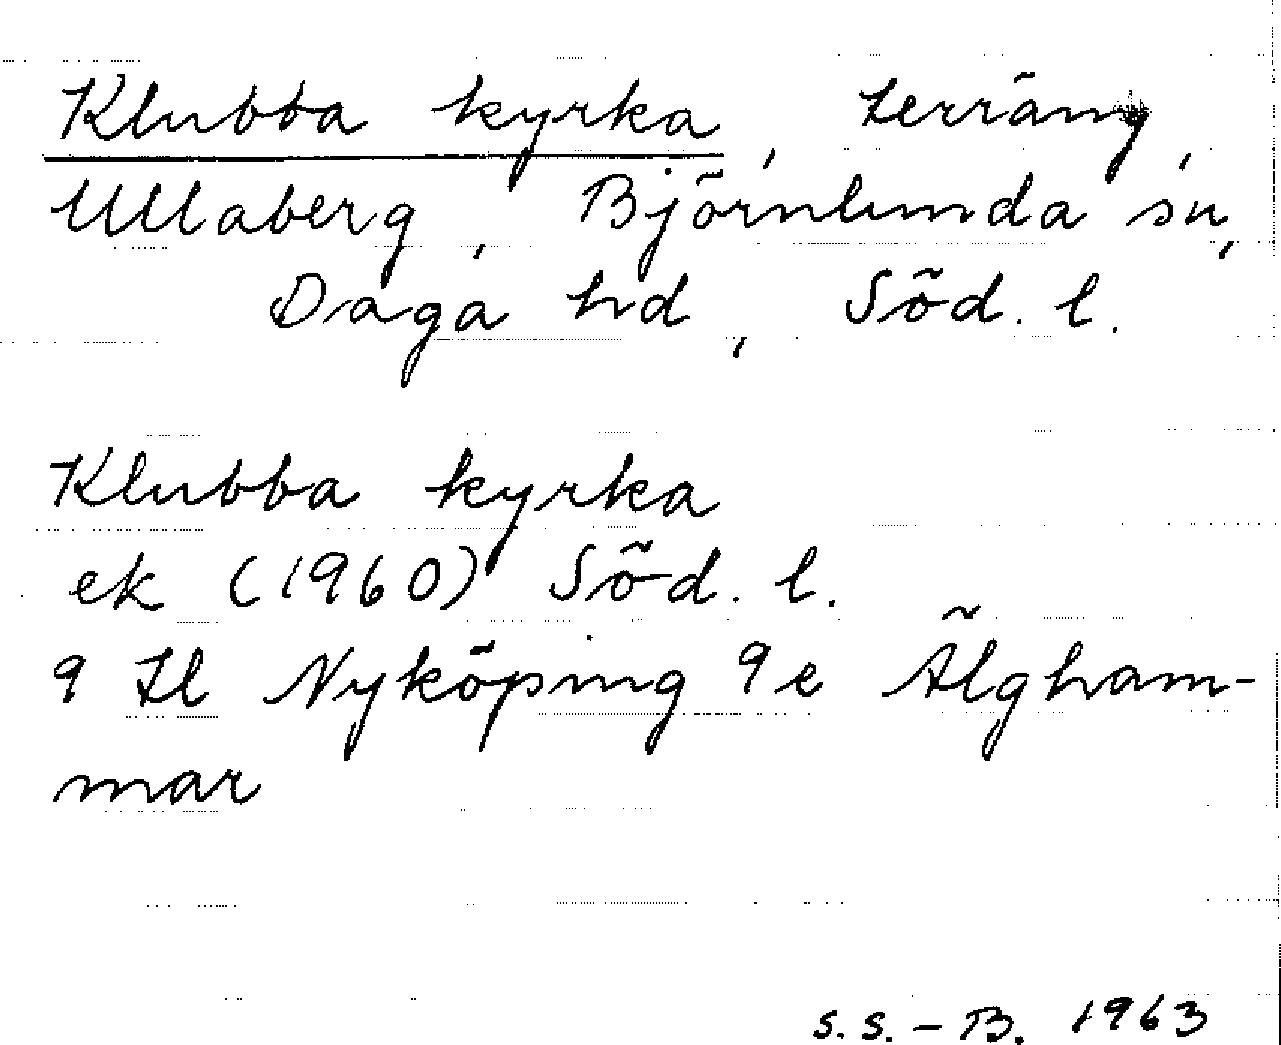 Klubba kyrka, terräng,
Ullaberg, Björnlunda sn,
Daga hd, Söd. l.
Klubba kyrka
ek (1960) Söd. l.
9 Il Nyköping 9e Älgham-
mar
S.S.-B. 1963